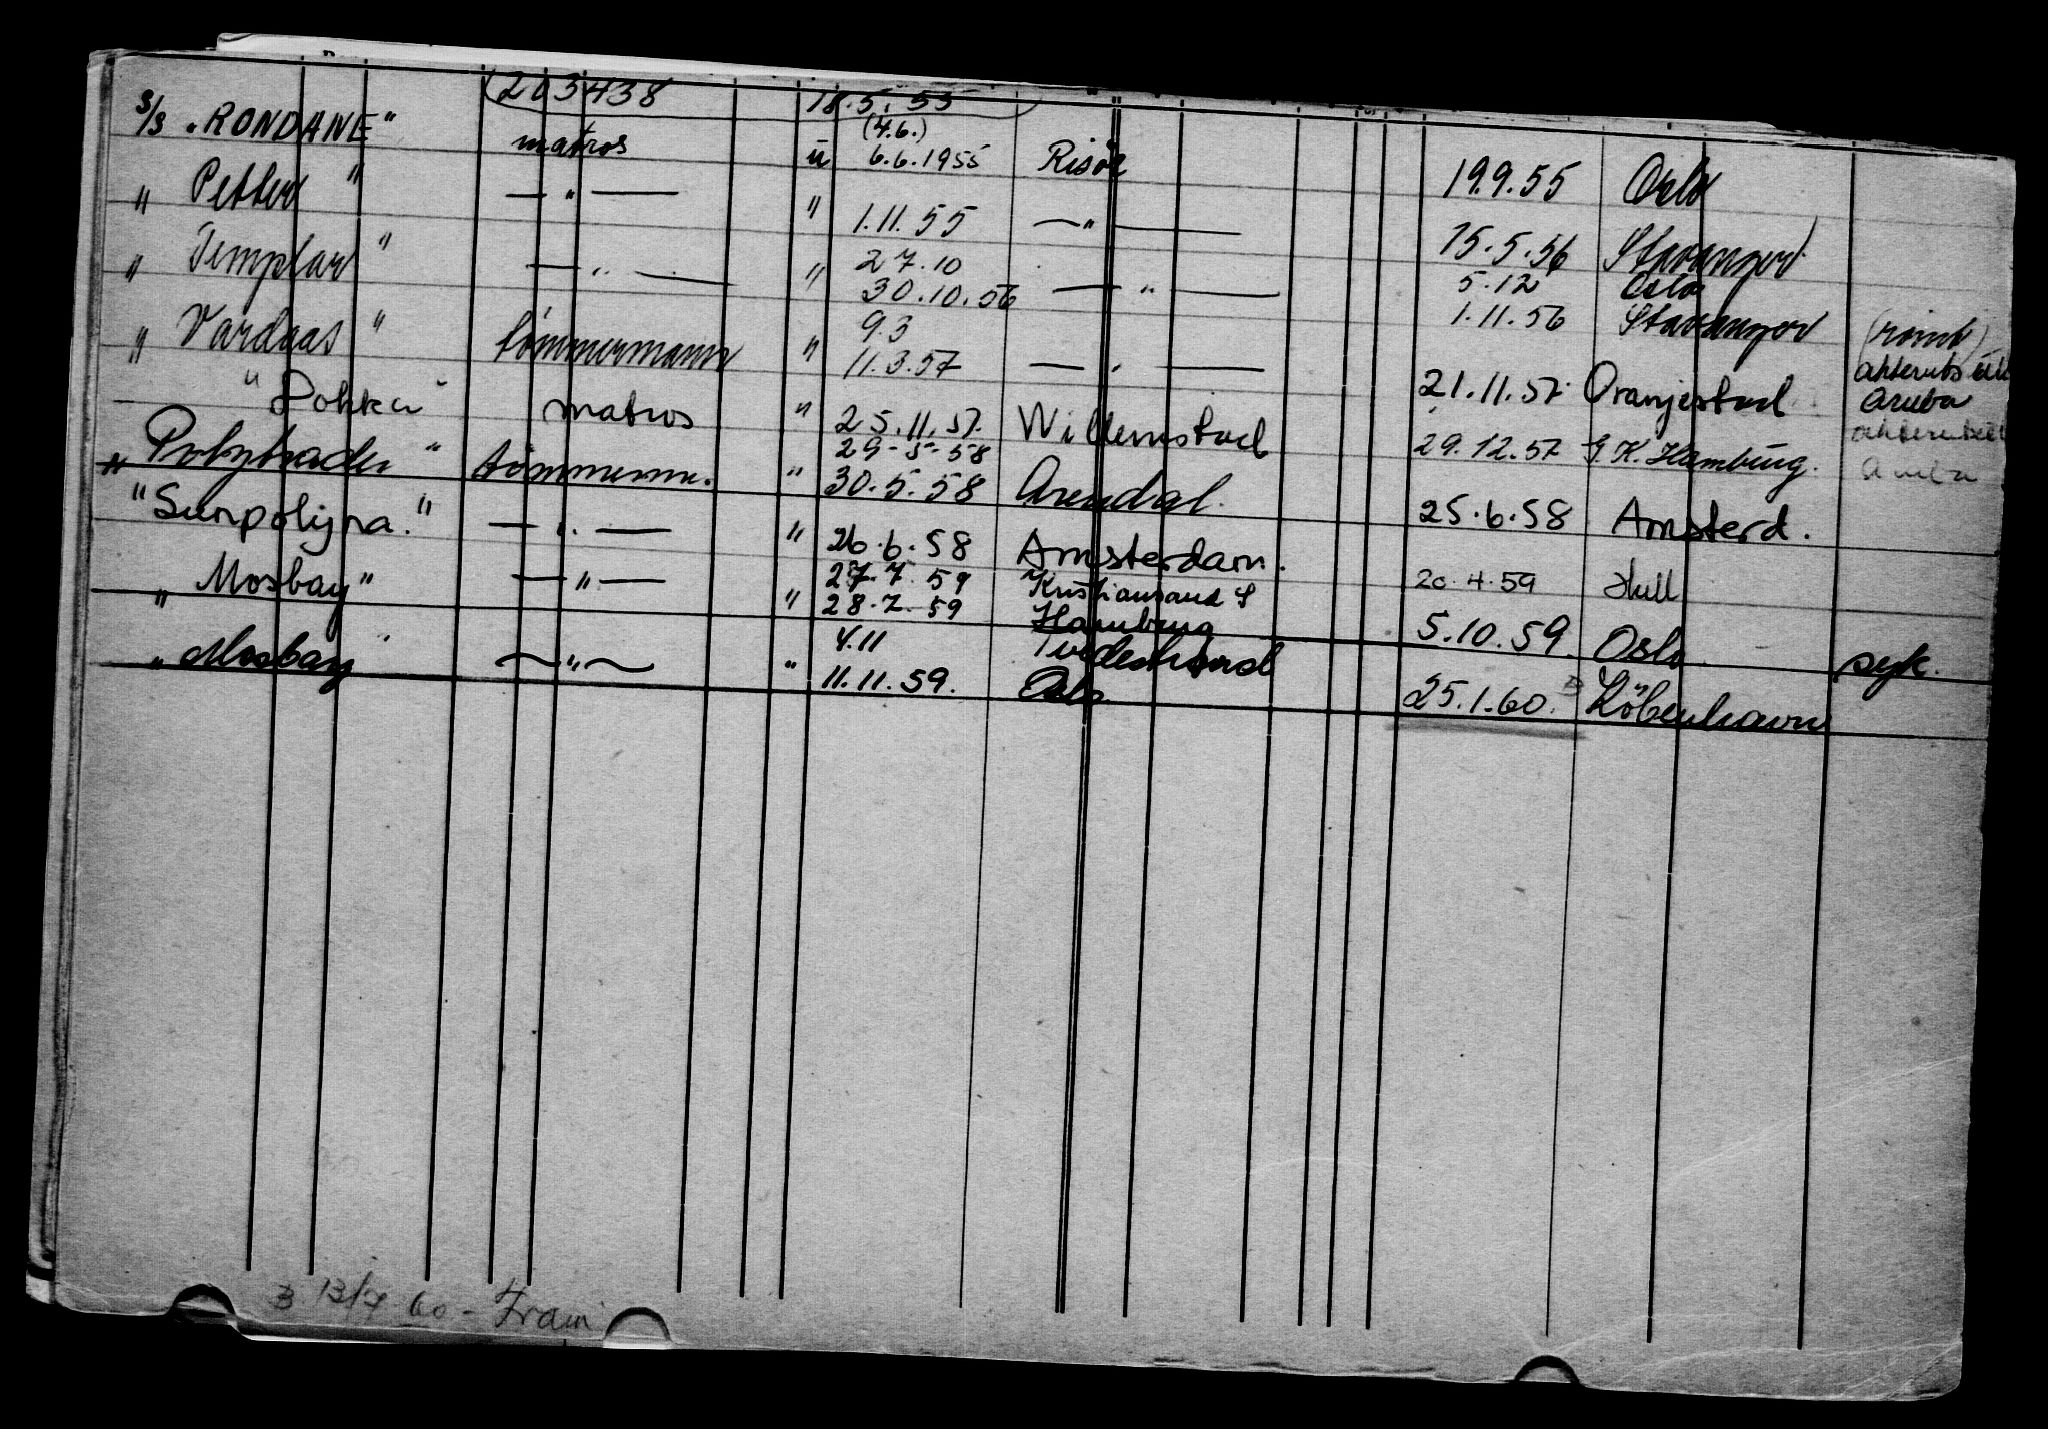 203438 18.5.55
S/S "RONDANE" matros u (4.6.) 6.6.1955 Risör 19.9.55 Oslo
" Petter " — " — " 1.11.55 — " — 15.5.56 Stavanger
" Templar " — " — " 27.10 30.10.56 — " — 5.12 Oslo 1.11.56 Stavanger (rømt)
" Vardaas " tømmermann " 9.3 11.3.57 — " — 21.11.57 Oranjestad Aruba
" " matros " 25.11.57. Willemstad 29.12.57 G.K. Hamburg.
" Polytrader " tømmerm. " 29-5-58 30.5.58 Arendal. 25.6.58 Amsterd.
"Sunpolyna." — " — " 26.6.58 Amsterdam. 20.4.59 Hull
" Mosbay" — " — " 27.7.59 Kristiansand S 28.7.59 Hamburg 5.10.59. Oslo syk.
" Mosbay — " — " 4.11 Tvedestrand 11.11.59. Oslo 25.1.60. Köbenhavn
B 13/7 60 - Fram